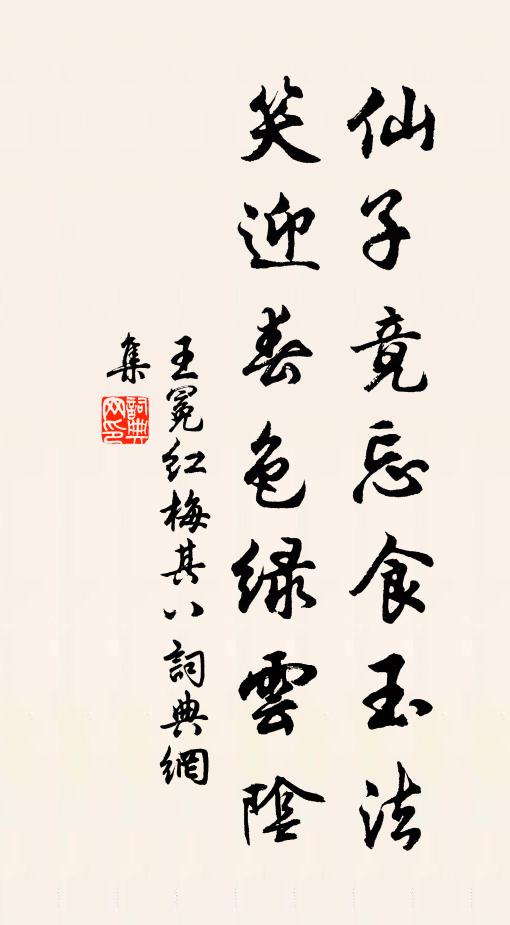 仙子竟忘食玉法
笑迎春色綠雲陰
王冕红梅其八詞典網
集
詞典
网印